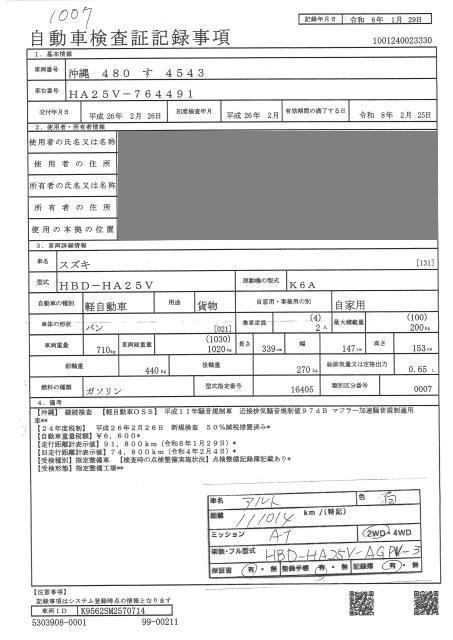 1007
記録年月日 令和 6年 1月 29日
自動車検査証記録事項
1001240023330
1. 基本情報
車両番号 沖縄 480 す 4543
車台番号 HA25V-764491
交付年月日 平成 26年 2月 26日 初度検査年月 平成 26年 2月 有効期間の満了する日 令和 8年 2月 25日
2. 使用者・所有者情報
使用者の氏名又は名称
使用者の住所
所有者の氏名又は名称
所有者の住所
使用の本拠の位置
3. 車両詳細情報
車名 スズキ [131]
型式 HBD-HA25V 原動機の型式 K6A
自動車の種別 軽自動車 用途 貨物 自家用・事業用の別 自家用
車体の形状 バン [021] 乗車定員 (4) 2人 最大積載量 (100) 200kg
車両重量 710kg 車両総重量 (1030) 1020kg 長さ 339cm 幅 147cm 高さ 153cm
前軸重 440kg 後軸重 270kg 総排気量又は定格出力 0.65 L
燃料の種類 ガソリン 型式指定番号 16405 類別区分番号 0007
4. 備考
【沖縄】 継続検査 【軽自動車OSS】 平成11年騒音規制車 近接排気騒音規制値97dB マフラー加速騒音規制適用
車**
【24年度税制】 平成26年2月26日 新規検査 50%減税措置済み*
【自動車重量税額】 ¥6,600*
【走行距離計表示値】 91,800km(令和6年1月29日)*
【旧走行距離計表示値】 74,800km(令和4年2月4日)*
【受検種別】指定整備車 【検査時の点検整備実施状況】点検整備記録簿記載あり*
【受検形態】指定整備工場**
車名 アルト 色 白
距離 111014 km/(特記)
ミッション AT 2WD・4WD
架装・フル型式 HBD-HA25V-AGPV-3
保証書 有・無 整備手帳 有・無 記録簿 有・無
【注意事項】
記録事項はシステム登録時点の情報となります
車両ID K9562SM2570714
5303908-0001 99-00211